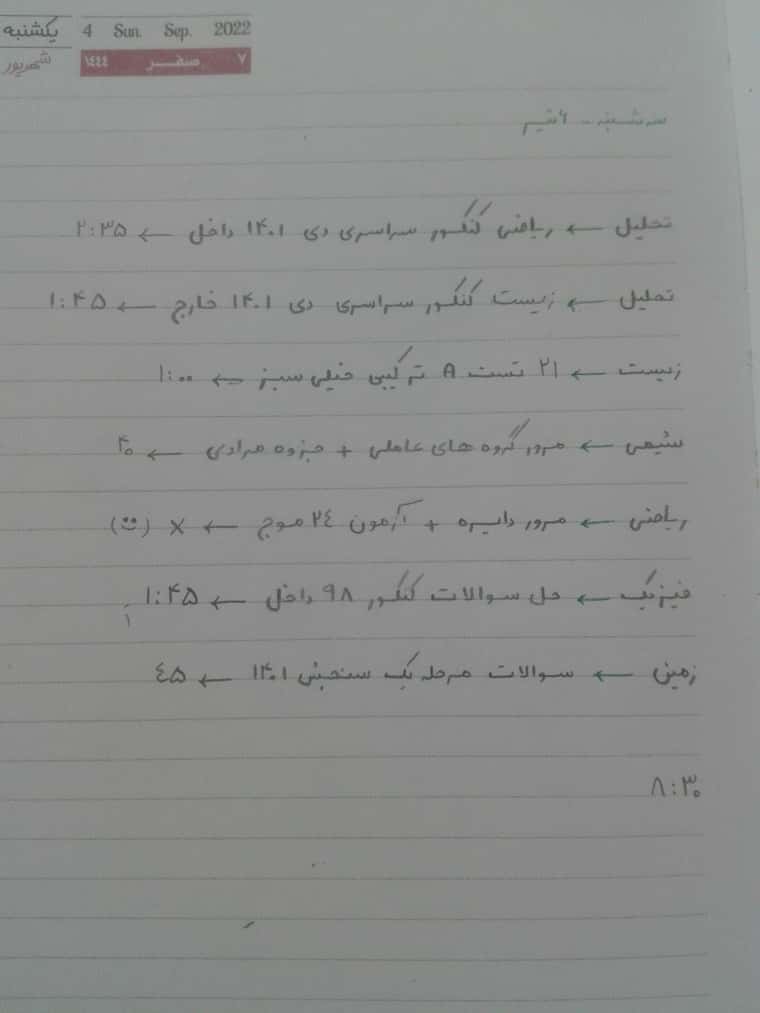 یکشنبه 4 Sun. Sep. 2022
شهریور ۷ صفر ۱٤٤٤
سه شنبه - ۶ تیر
تحلیل ← ریاضی کنکور سراسری دی ۱۴۰۱ داخل ← ۲:۳۵
تحلیل ← زیست کنکور سراسری دی ۱۴۰۱ خارج ← ۱:۴۵
زیست ← ۲۱ تست A ترکیبی خیلی سبز ← ۱:۰۰
شیمی ← مرور گروه های عاملی + جزوه مرادی ← ۴۰
ریاضی ← مرور دایره + آزمون ۲٤ موج ← X (☺)
فیزیک ← حل سوالات کنکور ۹۸ داخل ← ۱:۴۵
۱
زمین ← سوالات مرحله یک سنجش ۱۴۰۱ ← ٤۵
۸:۳۰